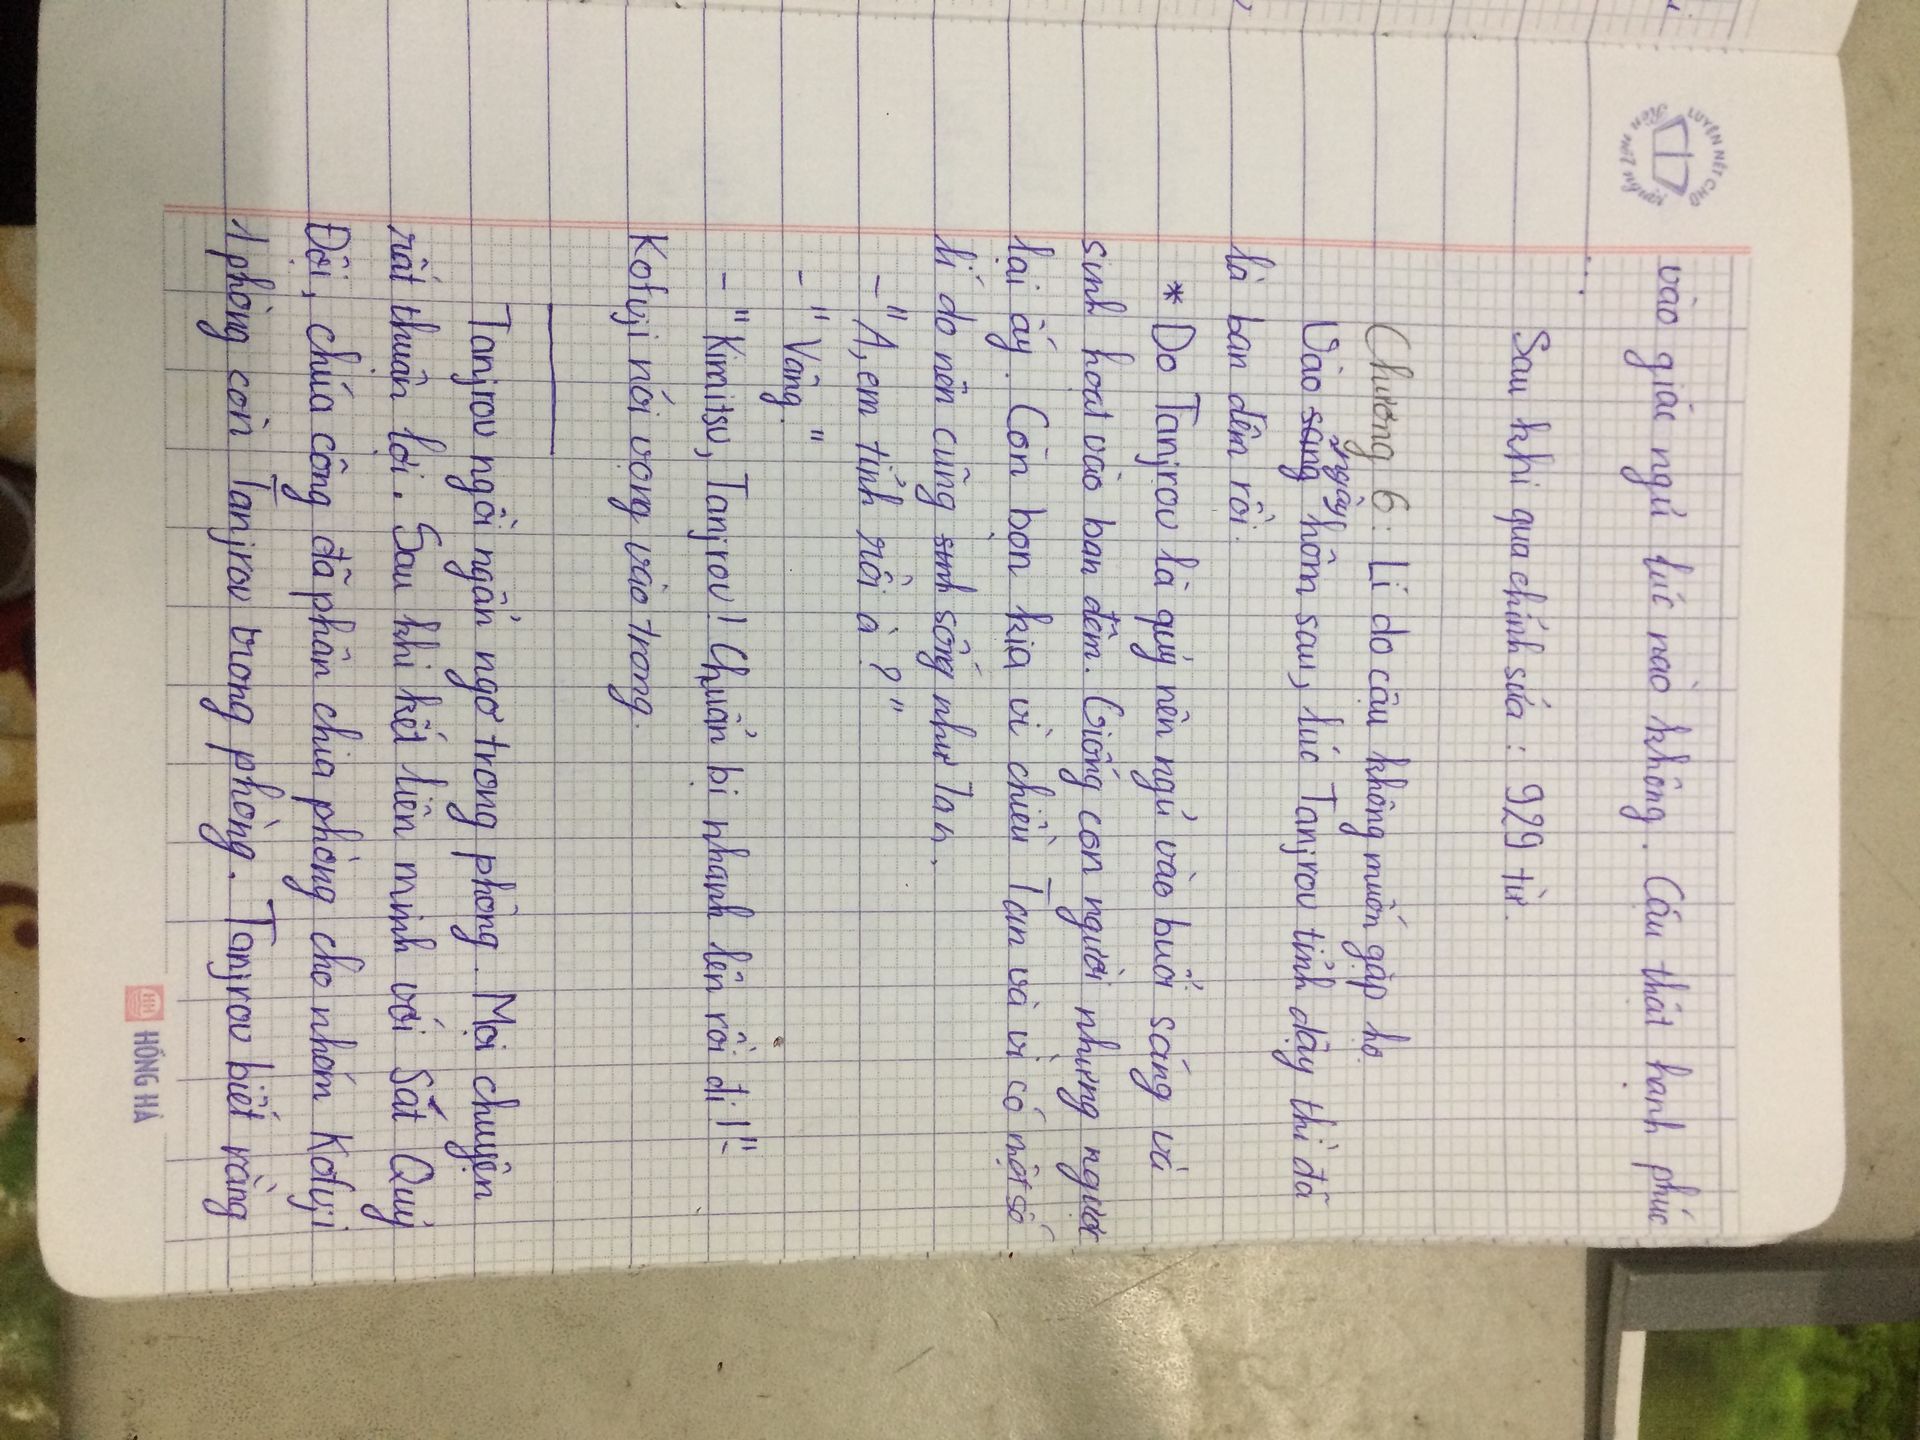 LUYỆN NÉT CHỮ
Rèn nết người
vào giấc ngủ lúc nào không. Cậu thật hạnh phúc
Sau khi qua chỉnh sửa : 929 từ.
Chương 6: Lí do cậu không muốn gặp họ.
Vào sáng ngày hôm sau, lúc Tanjrou tỉnh dậy thì đã
là ban đêm rồi.
* Do Tanjrou là quỷ nên ngủ vào buổi sáng và
sinh hoạt vào ban đêm. Giống con người nhưng ngược
lại ấy. Còn bọn kia vì chiều Tan và vì có một số
lí do nên cũng sinh sống như Tan.
- "A, em tỉnh rồi à ? "
- " Vâng. "
- " Kimitsu, Tanjrou! Chuẩn bị nhanh lên rồi đi !"
Kotyji nói vọng vào trong.
Tanjrou ngồi ngẩn ngơ trong phòng. Mọi chuyện
rất thuận lợi. Sau khi kết liên minh với Sát Quỷ
Đội, chúa công đã phân chia phòng cho nhóm Kotyji
1 phòng còn Tanjrou trong phòng. Tanjrou biết rằng
HỒNG HÀ